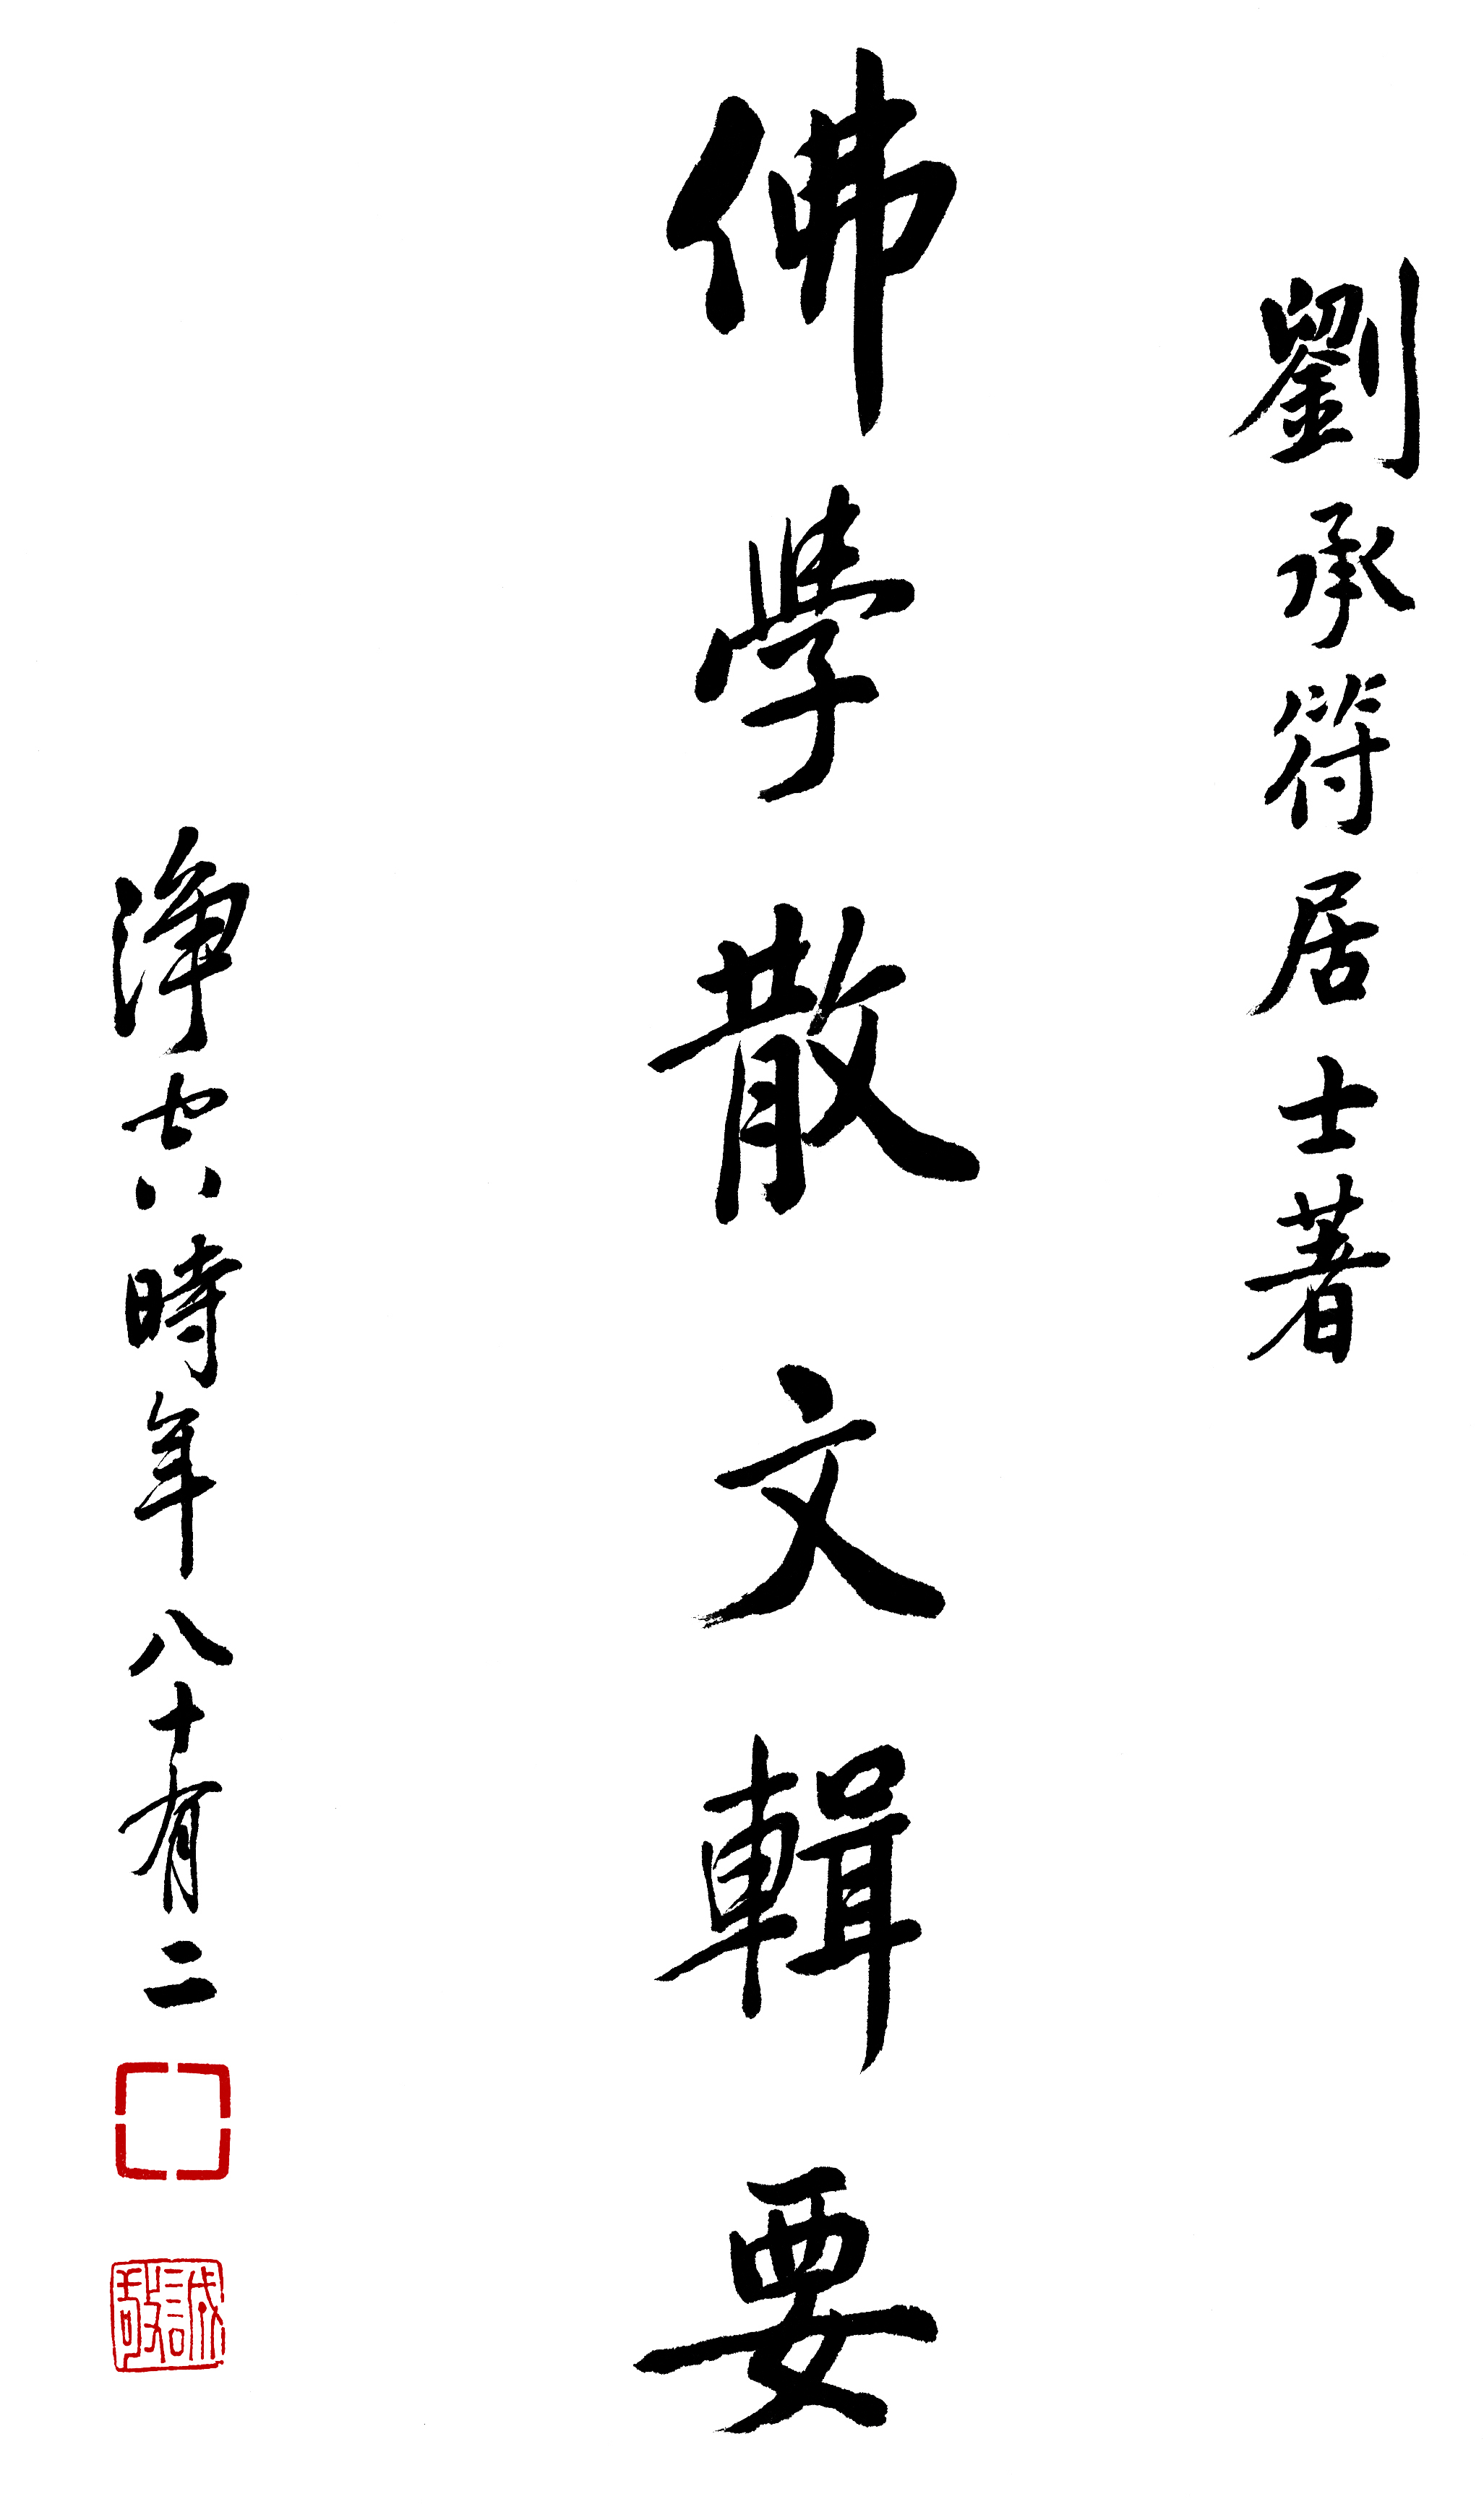 劉承符居士著
佛學散文輯要
淨空時年八十有二